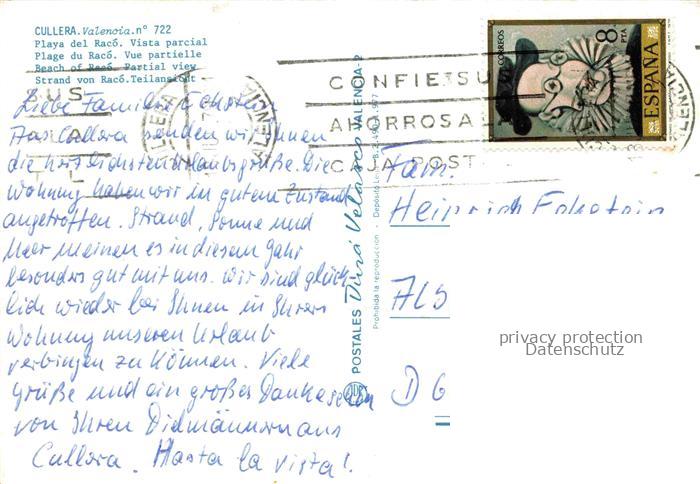 CULLERA.Valencia.nº 722
Playa del Racó. Vista parcial
Plage du Racó. Vue partielle
Beach of Racó. Partial view
Strand von Racó.Teilansicht
Liebe Familie Eckstein
Aus Cullera senden wir Ihnen
die herzlichsten Urlaubsgrüße. Die
Wohnung haben wir in gutem Zustand
angetroffen. Strand, Sonne und
Meer meinen es in diesem Jahr
besonders gut mit uns. Wir sind glück-
lich wieder bei Ihnen in Ihrer
Wohnung unseren Urlaub
verbringen zu können. Viele
Grüße und ein großes Dankeschön
von Ihren
aus
Cullera. Hasta la vista!
POSTALES
VALENCIA-2
Prohibida la reproducción - Depósito Legal
CORREOS
8 PTA
ESPAÑA
CONFIE SU
AHORROS A
CAJA POST
Fam.
Heinrich Eckstein
D 6
privacy protection
Datenschutz